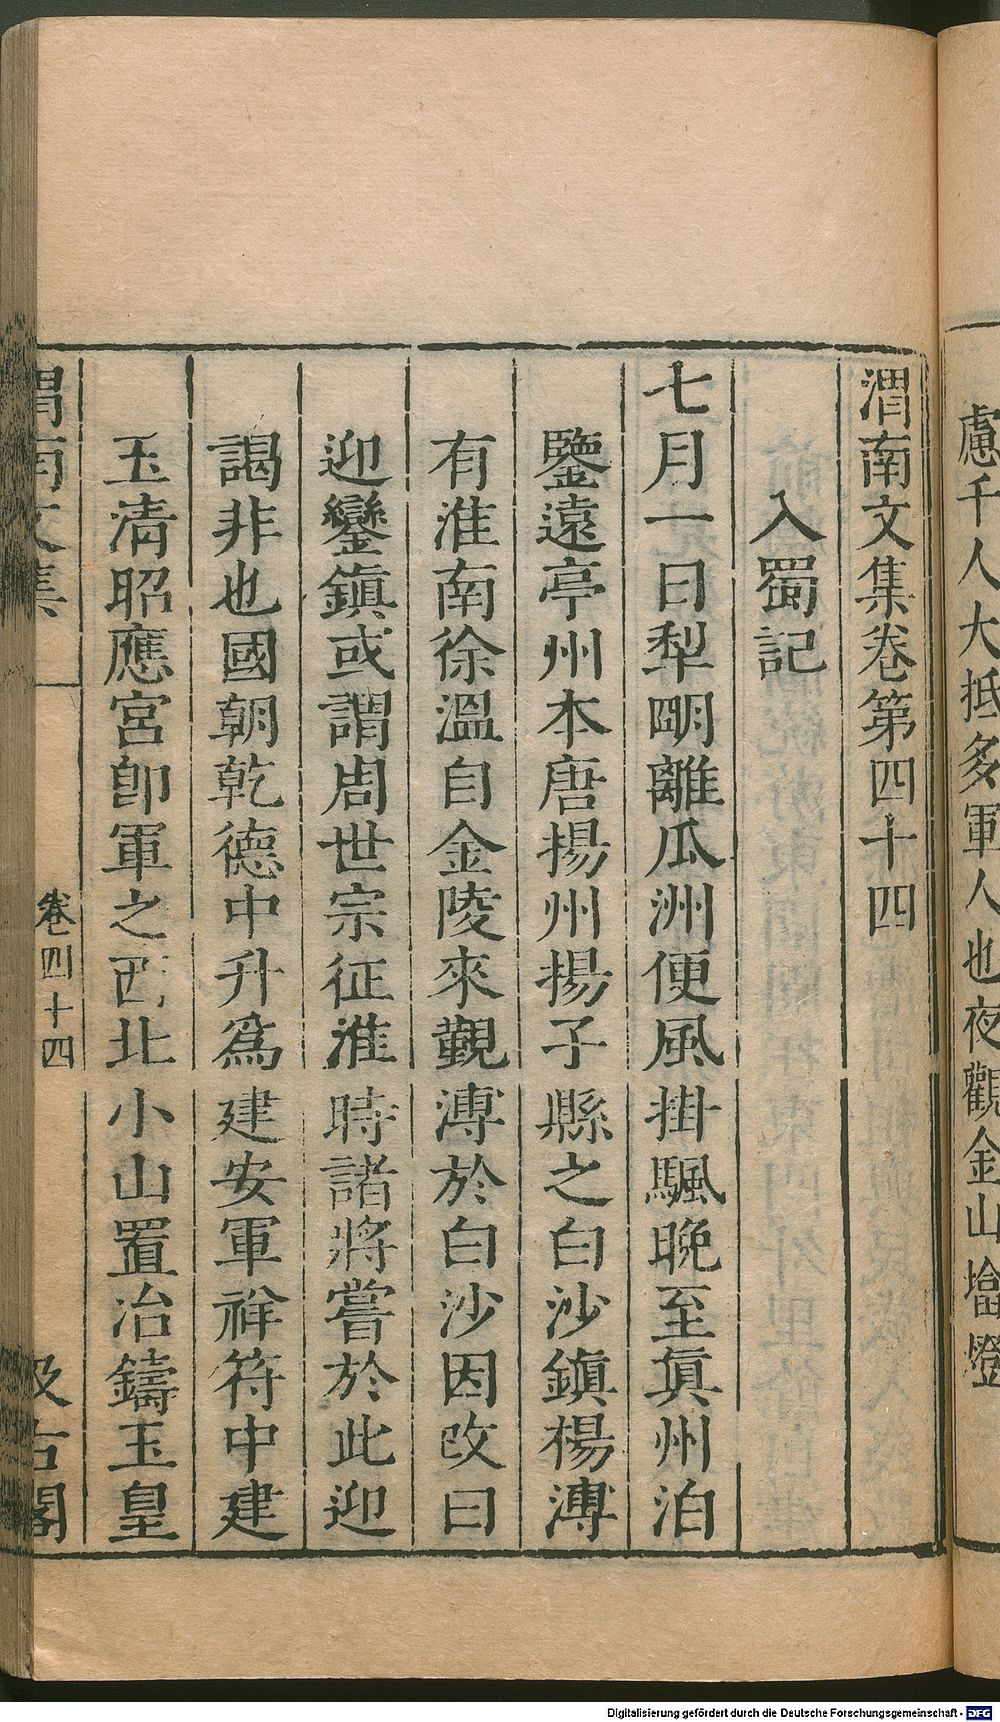 慮千人大抵多軍人也夜觀金山塔燈
渭南文集卷第四十四
入蜀記
七月一日犁明離瓜洲便風挂颿晚至真州泊
鑒遠亭州本唐揚州揚子縣之白沙鎮楊溥
有淮南徐溫自金陵來覲溥於白沙因改曰
迎鑾鎮或謂周世宗征淮時諸將嘗於此迎
謁非也國朝乾德中升為建安軍祥符中建
玉清昭應宮卽軍之西北小山置冶鑄玉皇
渭南文集
卷四十四
汲古閣
Digitalisierung gefördert durch die Deutsche Forschungsgemeinschaft - DFG